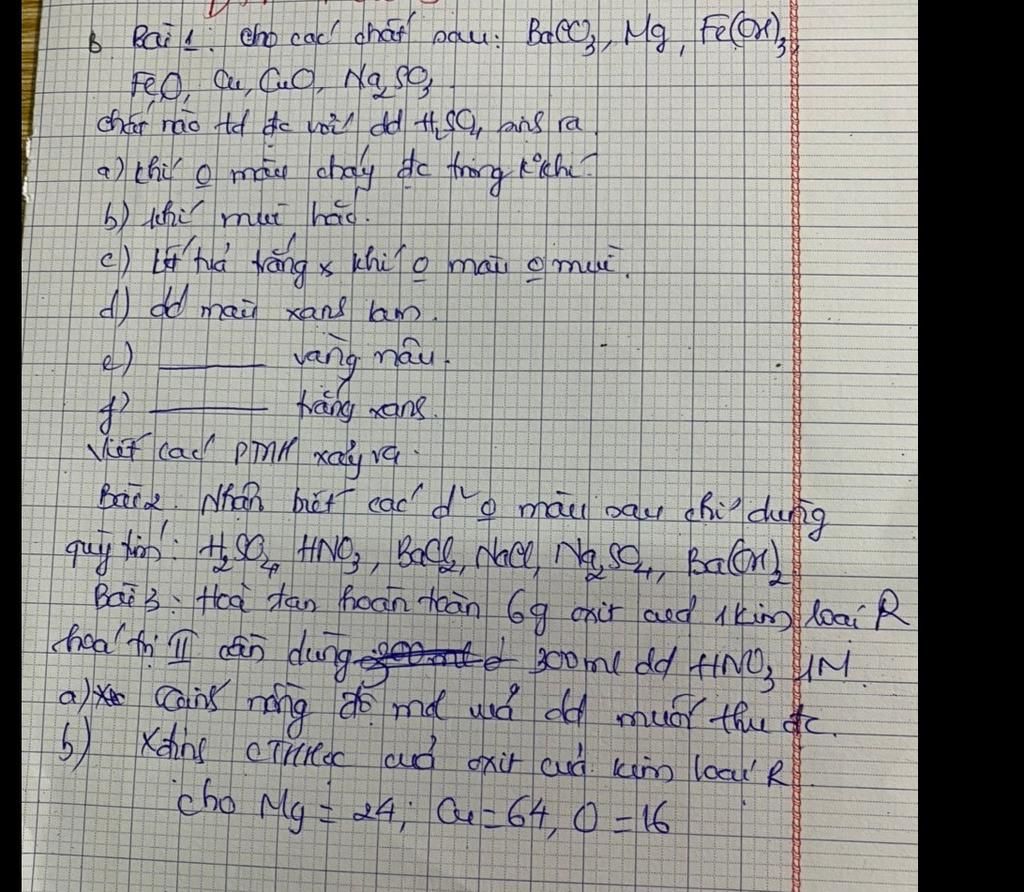 Bài 1: Cho các chất sau: BaCO3, Mg, Fe(OH)3,
FeO, Cu, CuO, Na2SO3
chất nào td đc với dd H2SO4 sinh ra
a) khí 0 màu cháy đc trong k° khí.
b) khí mùi hắc.
c) kết tủa trắng & khí 0 màu 0 mùi.
d) dd màu xanh lam.
e) ______ vàng nâu.
f) ______ trắng xanh.
Viết các PTHH xảy ra.
Bài 2. Nhận biết các d² 0 màu sau chỉ dùng
quỳ tím: H2SO4, HNO3, BaCl2, NaCl, Na2SO4, Ba(OH)2
Bài 3: Hoà tan hoàn toàn 6g oxit của 1 kim loại R
hoá trị II cần dùng 300ml dd HNO3 1M
a) Tính nồng độ mol của dd muối thu đc.
b) Xđịnh CTHH của oxit của kim loại R
cho Mg = 24; Cu = 64, O = 16